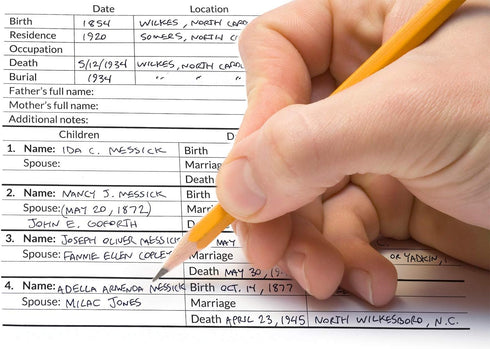 Date Location
Birth 1854 WILKES, NORTH
Residence 1920 SOMERS, NORTH
Occupation
Death 5/12/1934 WILKES, NORTH
Burial 1934 " " "
Father's full name:
Mother's full name:
Additional notes:
Children
1. Name: IDA C. MESSICK Birth
Spouse: Marriage
Death
2. Name: NANCY J. MESSICK Birth
Spouse: (MAY 20, 1872) Marriage
JOHN E. GOFORTH
3. Name: JOSEPH OLIVER MESSICK
Spouse: FANNIE ELLEN COPLEY OR YADKIN,
Death MAY 30,
4. Name: ADELLA ARMENDA MESSICK Birth OCT. 14, 1877
Spouse: MILAC JONES Marriage
Death APRIL 23, 1945 NORTH WILKESBORO, N.C.